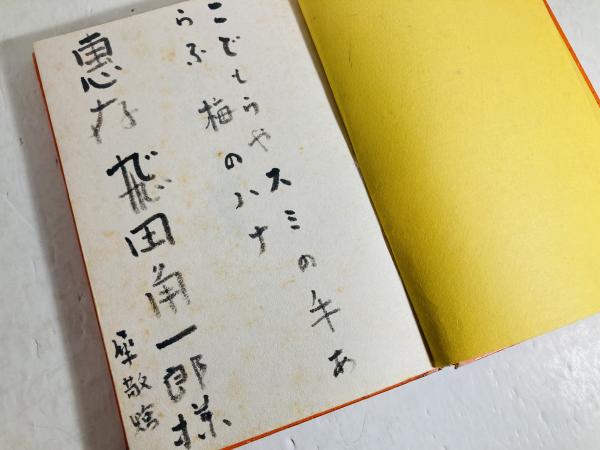 こどもらやスミの手あ
らふ梅のハナ
惠存 飛田角一郎様
犀